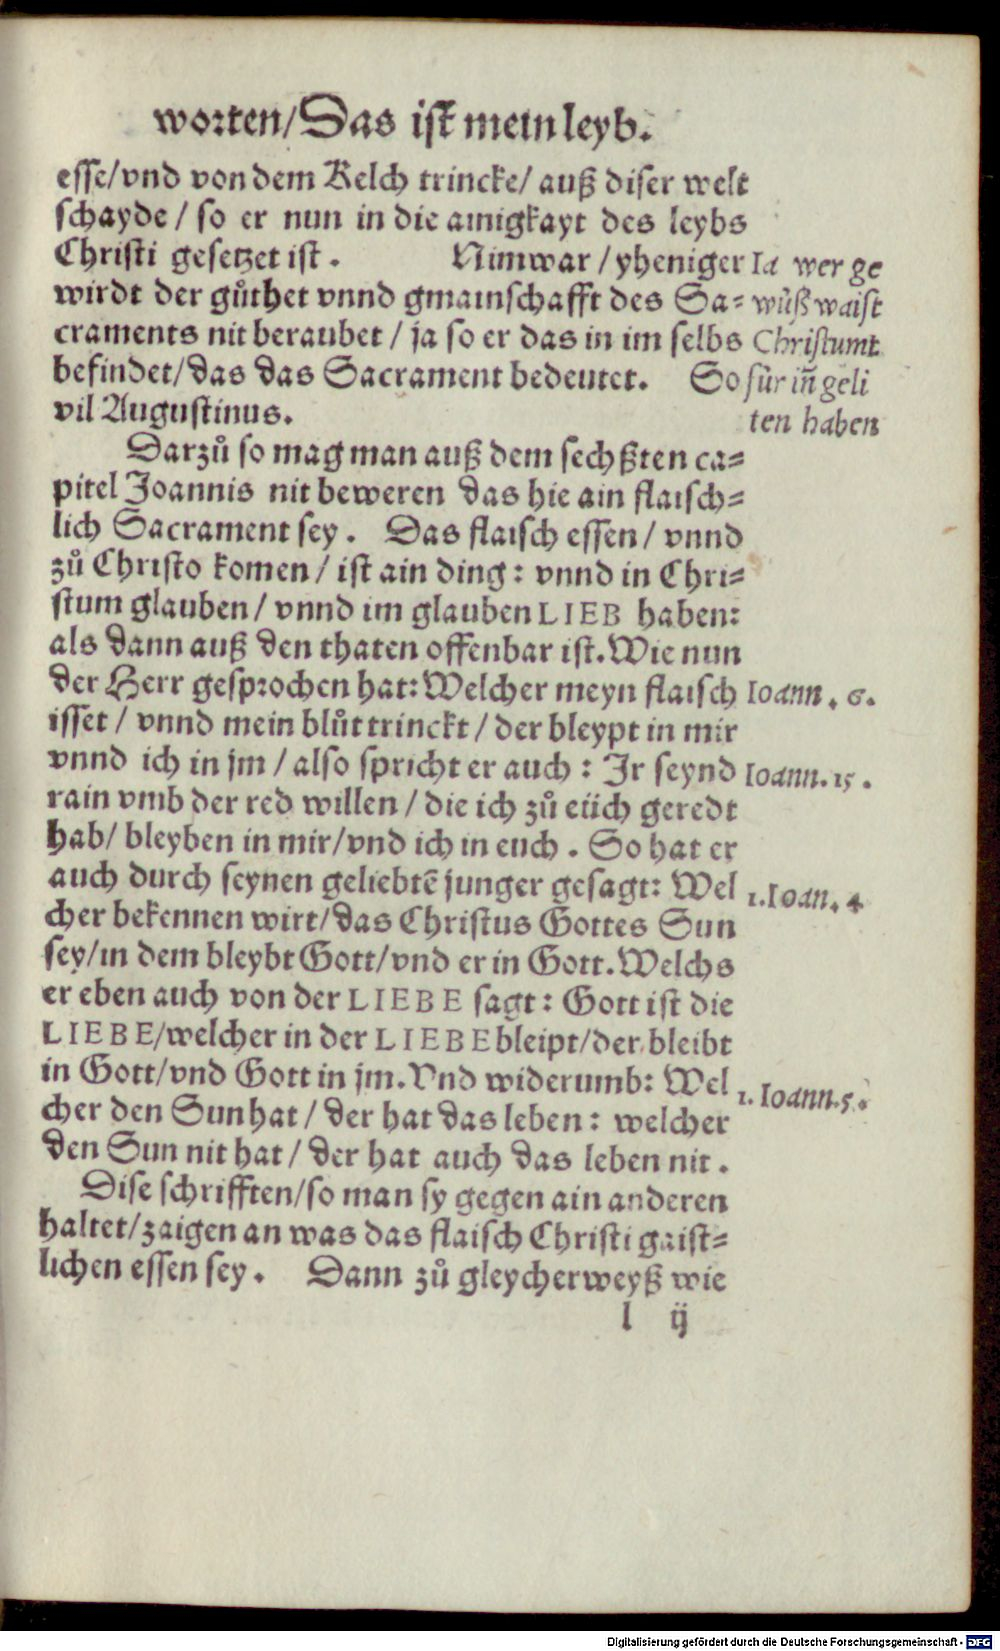 worten/Das ist mein leyb.
esse/vnd von dem Kelch trincke/ auß diser welt
schayde / so er nun in die ainigkayt des leybs
Christi gesetzet ist. Nimwar / yheniger
wirdt der gůthet vnnd gmainschafft des Sa-
craments nit beraubet / ja so er das in im selbs
befindet/das das Sacrament bedeutet. So
vil Augustinus.
Ia wer ge
wüß waist
Christum t
für in̄ geli
ten haben
Darzů so mag man auß dem sechßten ca-
pitel Joannis nit beweren das hie ain flaisch-
lich Sacrament sey. Das flaisch essen / vnnd
zů Christo komen / ist ain ding: vnnd in Chri-
stum glauben / vnnd im glauben LIEB haben:
als dann auß den thaten offenbar ist. Wie nun
der Herr gesprochen hat: Welcher meyn flaisch
Ioann. 6.
isset / vnnd mein blůt trinckt / der bleypt in mir
vnnd ich in jm / also spricht er auch : Ir seynd
Ioann. 15.
rain vmb der red willen / die ich zů eüch geredt
hab/ bleyben in mir/vnd ich in euch. So hat er
auch durch seynen geliebtē junger gesagt: Wel
1. Ioan. 4
cher bekennen wirt/das Christus Gottes Sun
sey/in dem bleybt Gott/vnd er in Gott. Welchs
er eben auch von der LIEBE sagt: Gott ist die
LIEBE/welcher in der LIEBE bleipt/der bleibt
in Gott/vnd Gott in jm. Vnd widerumb: Wel
1. Ioann. 5.
cher den Sun hat / der hat das leben: welcher
den Sun nit hat / der hat auch das leben nit.
Dise schrifften/so man sy gegen ain anderen
haltet/zaigen an was das flaisch Christi gaist-
lichen essen sey. Dann zů gleycherweyß wie
l ij
Digitalisierung gefördert durch die Deutsche Forschungsgemeinschaft - DFG